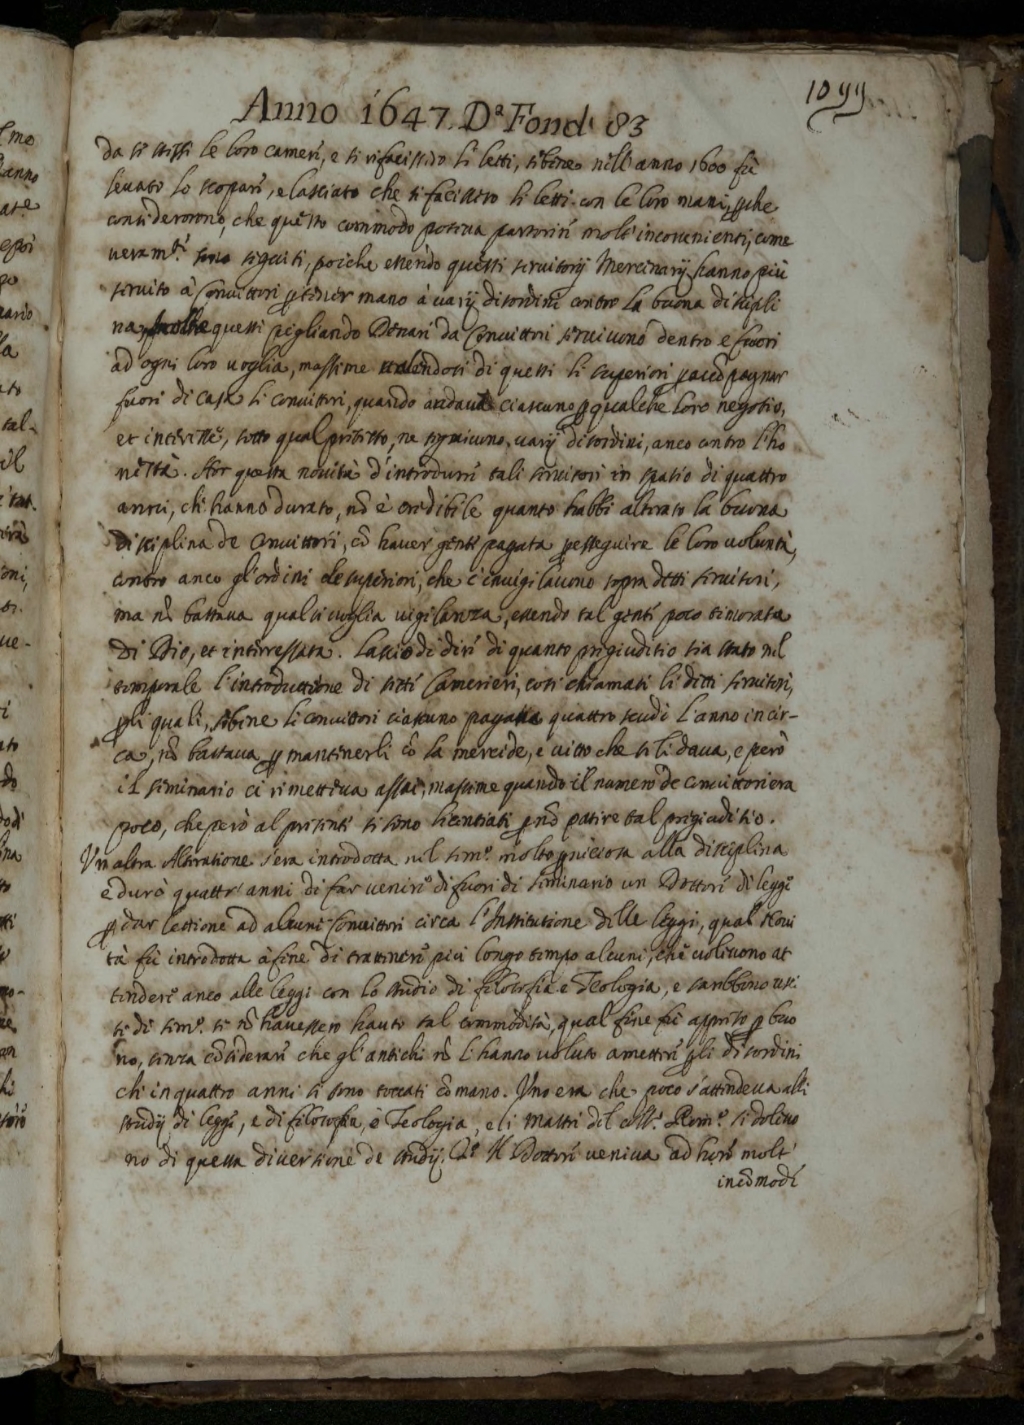 1099
Anno 1647. Dª Fond.e 83
da se stessi le loro camere, e si rifacessero li letti, sibene nell'anno 1600 fù
levato lo scopare, e lasciato che si facessero li letti con le loro mani, perche
considerorono, che questo commodo poteva partorire molt'inconvenienti, come
veram.te sono seguiti, poiche essendo questi servitorij Mercenarij hanno più
servito à Convittori per tener mano à varij disordini contro la buona discipli
na, questi pigliando Denari da Convittori servivono dentro e fuori
ad ogni loro voglia, massime valendosi di questi li superiori per accōpagnar
fuori di casa li convittori, quando andava ciascuno per qualche loro negotio,
et interesse, sotto qual pretesto, ne venivono varij disordini, anco contro l'ho
nestà. Hor questa novità d'introdurre tali servitori in spatio di quattro
anni, che hanno durato, nō è credibile quanto habbi alterato la buona
disciplina de Convittori, cō haver gente pagata per esseguire le loro voluntà,
contro anco gl'ordini de superiori, che c'invigilavono sopra detti servitori,
ma nō bastava qualsivoglia vigilanza, essendo tal gente poco timorata
di Dio, et interressata. Lascio di dire di quanto pregiuditio sia stato nel
temporale l'introduttione di sette Camerieri, cosi chiamati li detti servitori,
per li quali, sibene li convittori ciascuno pagava quattro scudi l'anno in cir-
ca, nō bastava per mantenerli cō la mercede, e vitto che se li dava, e però
il seminario ci rimetteva assai, massime quando il numero de convittori era
poco, che però al presente si sono licentiati per nō patire tal pregiuditio.
Un altra Alteratione s'era introdotta nel sem.o molto perniciosa alla disciplina
e durò quattr'anni di far venire di fuori di seminario un Dottore di leggi
per dar lettione ad alcuni Convittori circa l'Institutione delle leggi, qual novi
tà fù introdotta à fine di trattenere più longo tempo alcuni, che volevono at
tendere anco alle leggi con lo studio di filosofia e Teologia, e sarebbono usci
ti di sem.o se nō havessero hauto tal commodità, qual fine fù appreso per buo
no, senza cōsiderare che gl'antichi nō l'hanno voluto amettere per li disordini
che in quattro anni si sono toccati cō mano. Uno era che poco s'attendeva alli
studij di leggi, e di filosofia, e Teologia, e li Mastri del Coll.o Rom.o si dolevo
no di questa diversione de studij. 2.o Il Dottore veniva ad hore molt'
incōmode